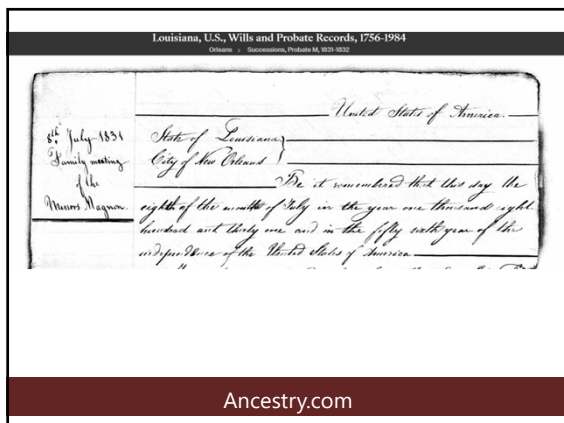 Louisiana, U.S., Wills and Probate Records, 1756-1984
Orleans > Successions, Probate M, 1831-1832
8th July 1831
Family meeting
of the
Minors Magnon.
United States of America.
State of Louisiana }
City of New Orleans }
Be it remembered that this day the
eighth of the month of July in the year one thousand eight
hundred and thirty one and in the fifty sixth year of the
independence of the United States of America
Ancestry.com